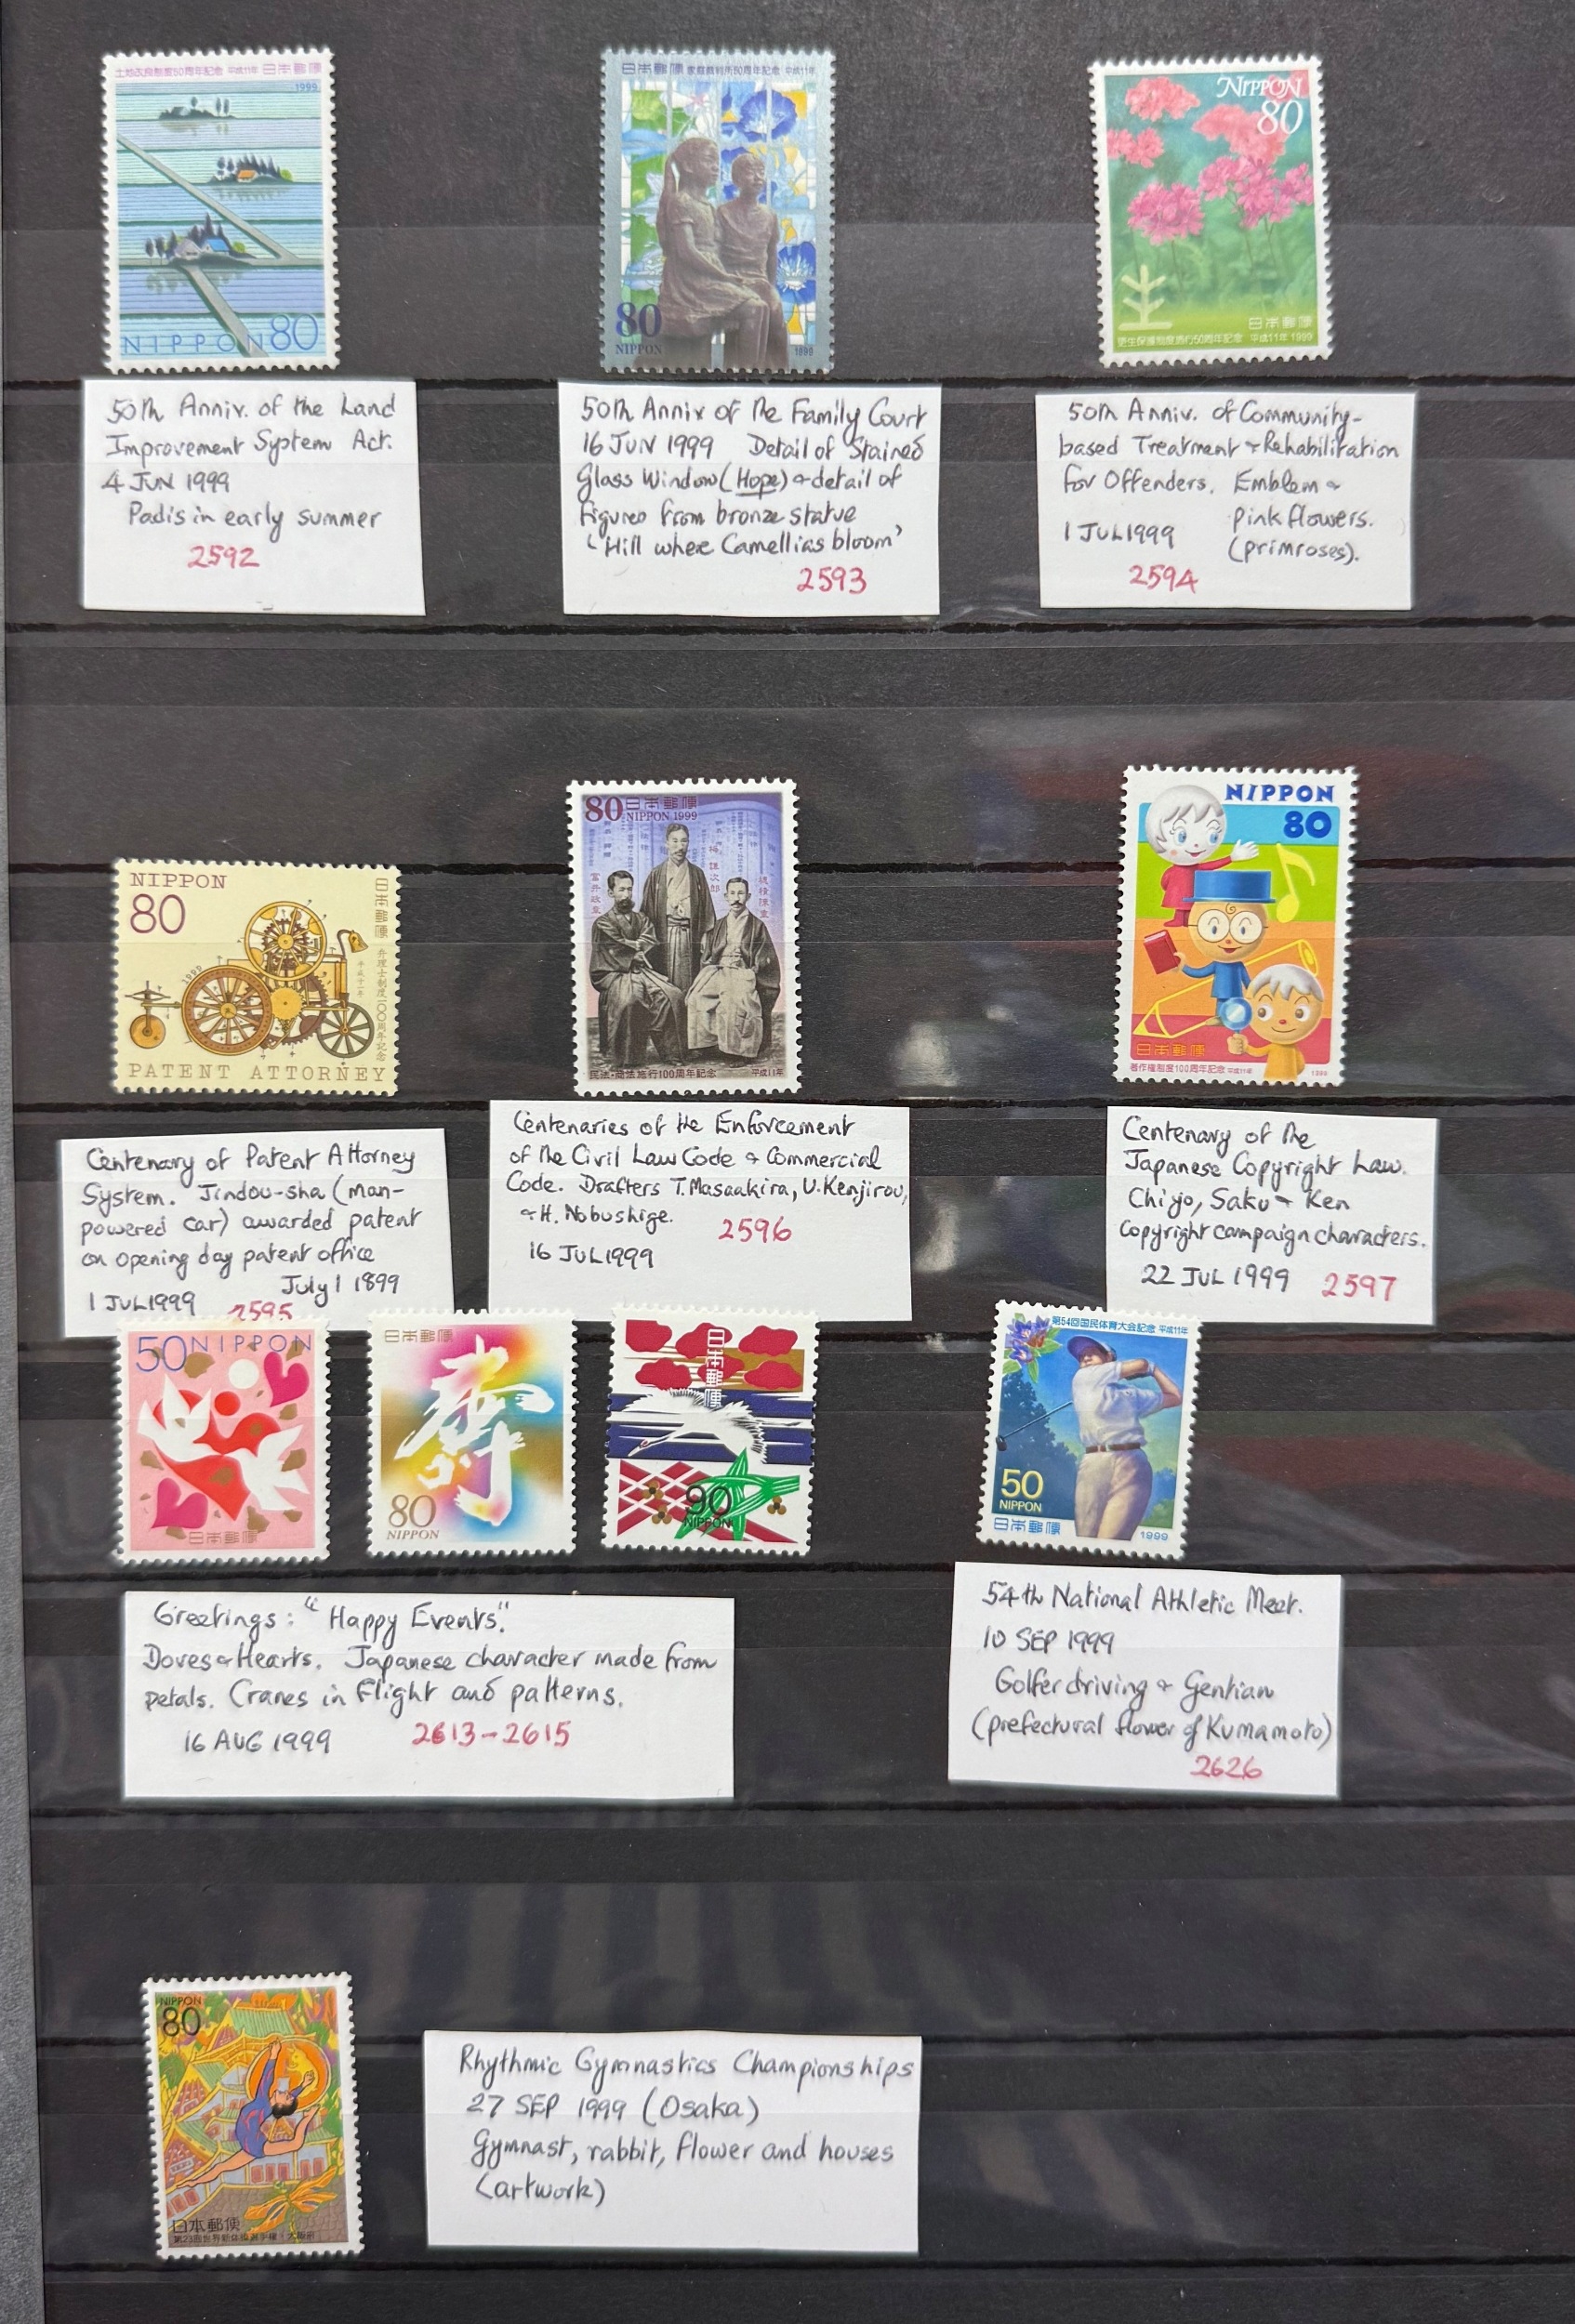 土地改良制度50周年記念 平成11年 日本郵便
1999
NIPPON 80
日本郵便 家庭裁判所50周年記念 平成11年
80
NIPPON
1999
NIPPON
80
日本郵便
更生保護制度施行50周年記念 平成11年 1999
50th Anniv. of the Land
Improvement System Act.
4 JUN 1999
Padis in early summer
2592
50th Anniv of the Family Court
16 JUN 1999 Detail of Stained
Glass Window (Hope) & detail of
figures from bronze statue
'Hill where Camellias bloom'
2593
50th Anniv. of Community-
based Treatment & Rehabilitation
for Offenders. Emblem &
pink flowers.
1 JUL 1999 (primroses).
2594
NIPPON
80
日本郵便
弁理士制度100周年記念
平成十一年
1999
PATENT ATTORNEY
80 日本郵便
NIPPON 1999
富井政章
梅謙次郎
穂積陳重
民法・商法施行100周年記念 平成11年
NIPPON
80
日本郵便
著作権制度100周年記念 平成11年 1999
Centenary of Patent Attorney
System. Jindou-sha (man-
powered car) awarded patent
on opening day patent office
July 1 1899
1 JUL 1999 2595
Centenaries of the Enforcement
of the Civil Law Code & Commercial
Code. Drafters T. Masaakira, U. Kenjirou,
& H. Nobushige. 2596
16 JUL 1999
Centenary of the
Japanese Copyright Law.
Chiyo, Saku & Ken
Copyright campaign characters.
22 JUL 1999 2597
50 NIPPON
日本郵便
日本郵便
寿
80
NIPPON
日本郵便
90
NIPPON
第54回国民体育大会記念 平成11年
50
NIPPON
日本郵便 1999
Greetings: "Happy Events".
Doves & Hearts. Japanese character made from
petals. Cranes in flight and patterns.
16 AUG 1999 2613-2615
54th National Athletic Meet.
10 SEP 1999
Golfer driving & Gentian
(prefectural flower of Kumamoto)
2626
NIPPON
80
日本郵便
第23回世界新体操選手権・大阪府
Rhythmic Gymnastics Championships
27 SEP 1999 (Osaka)
Gymnast, rabbit, flower and houses
(artwork)